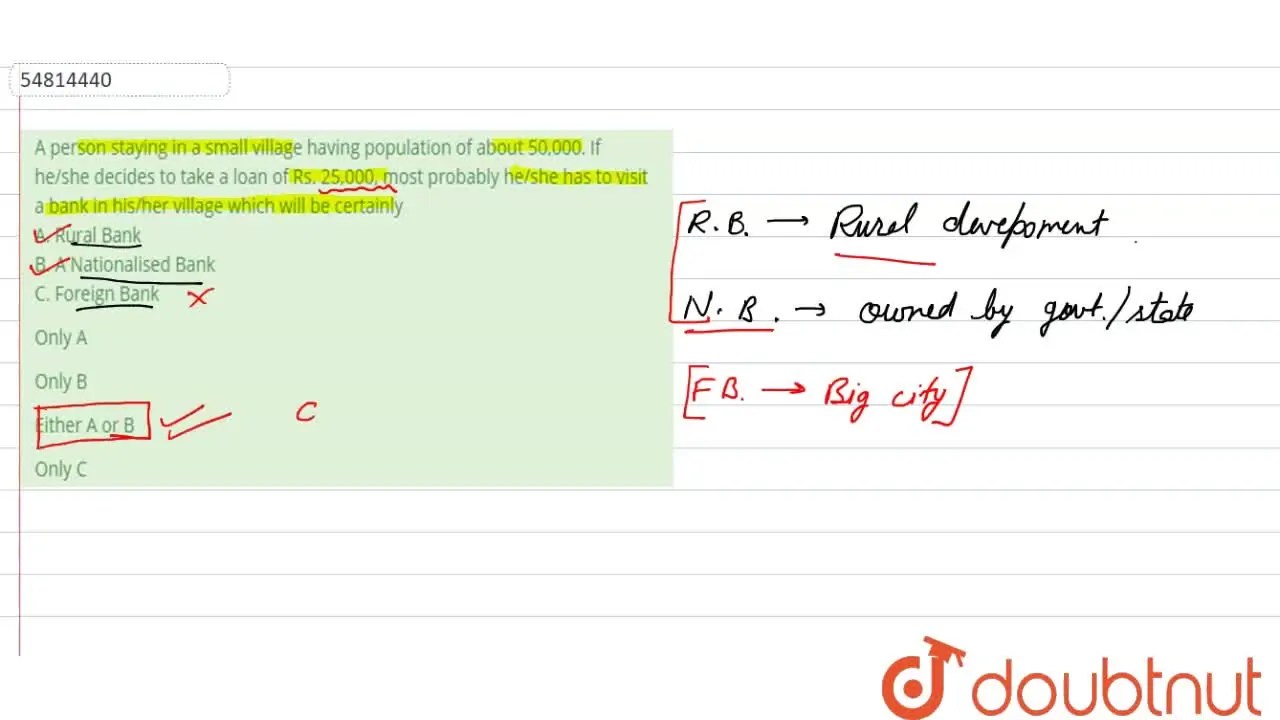 54814440
A person staying in a small village having population of about 50,000. If
he/she decides to take a loan of Rs. 25,000, most probably he/she has to visit
a bank in his/her village which will be certainly
A. Rural Bank
B. A Nationalised Bank
C. Foreign Bank X
Only A
Only B
Either A or B C
Only C
R.B. → Rural devepoment
N.B. → owned by govt./state
[F B. → Big city]
doubtnut